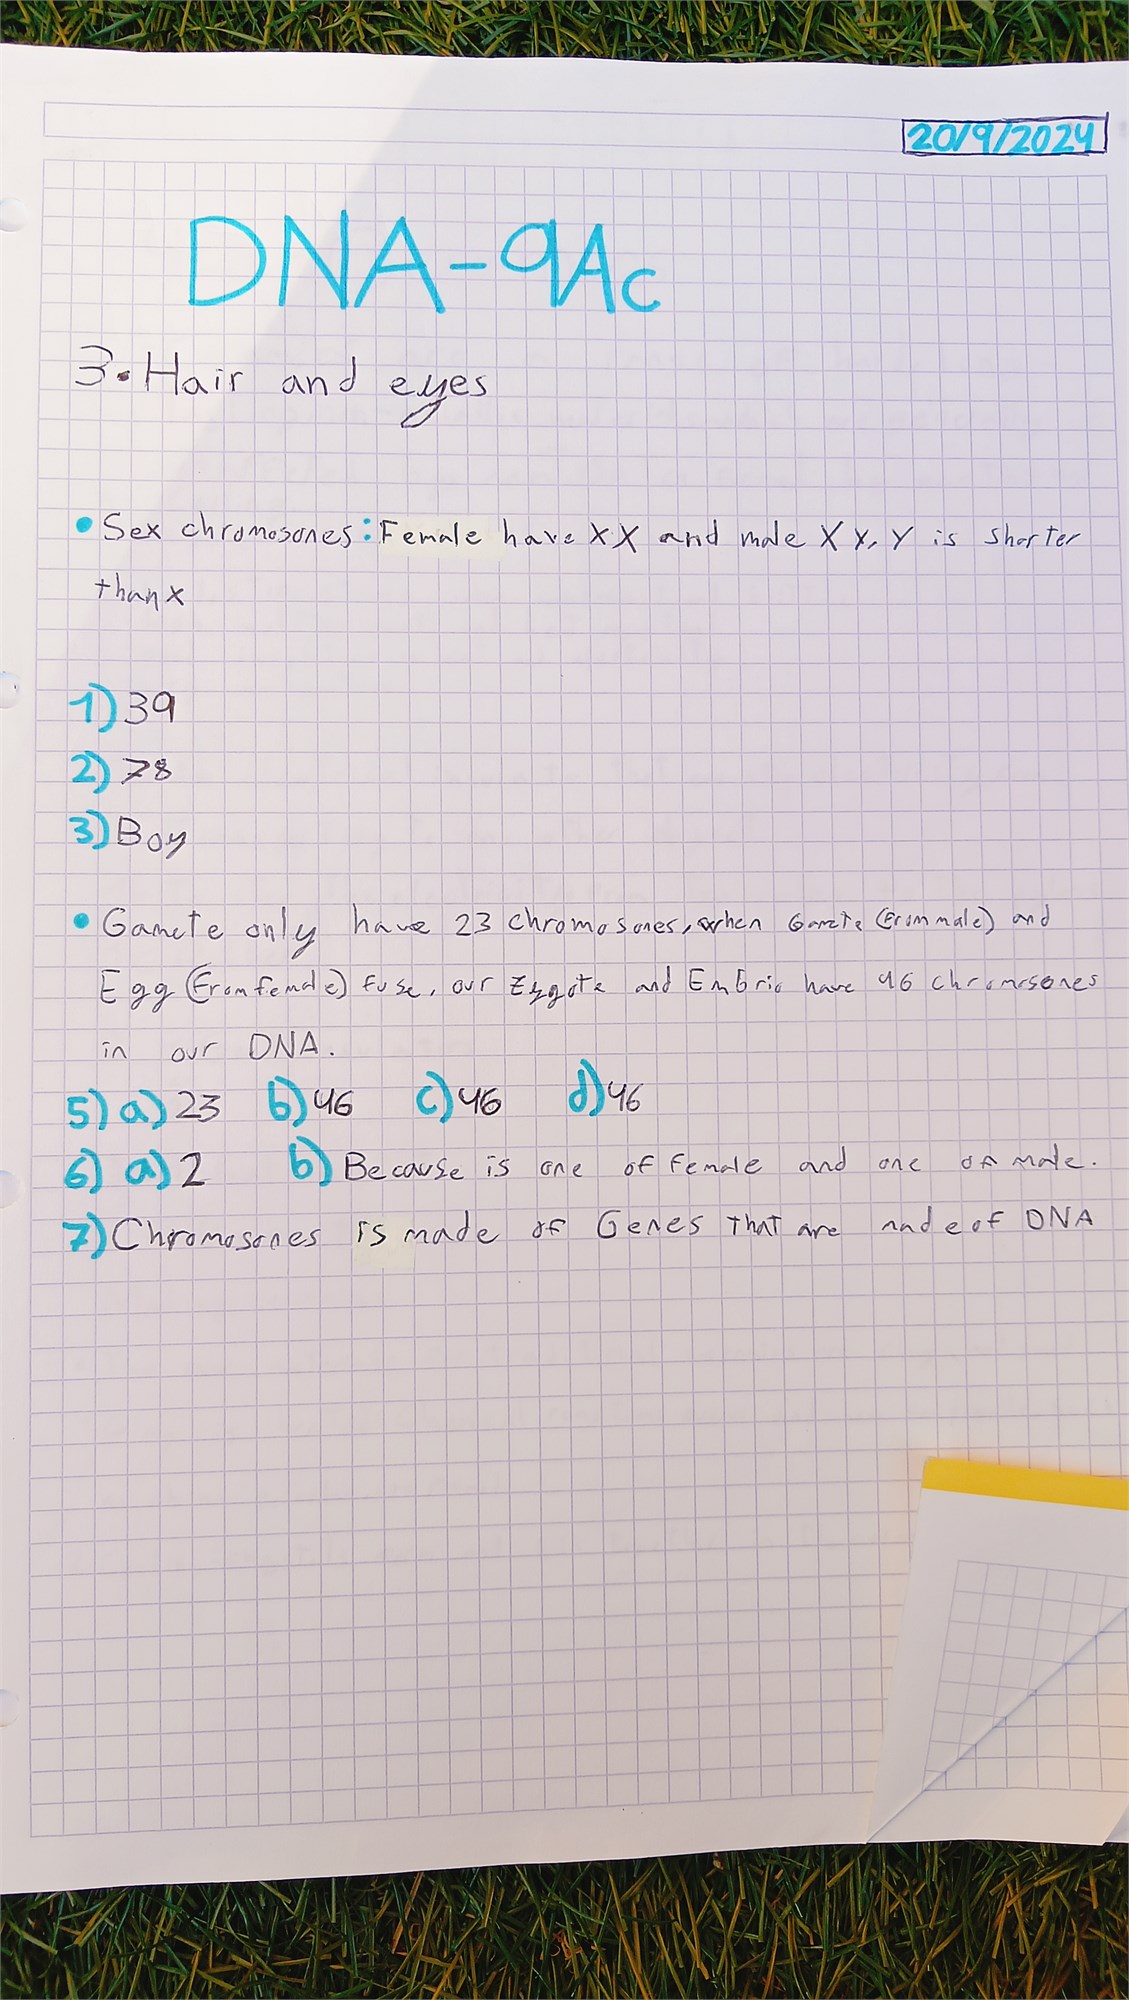 20/9/2024
DNA-9Ac
3. Hair and eyes
• Sex chromosones: Female have XX and male XY, Y is shorter
than x
1) 39
2) 78
3) Boy
• Gamete only have 23 chromosones, when Gamete (From male) and
Egg (From female) fuse, our Zygote and Embrio have 46 chromosones
in our DNA.
5) a) 23 b) 46 c) 46 d) 46
6) a) 2 b) Because is one of female and one of male.
7) Chromosones is made of Genes that are made of DNA